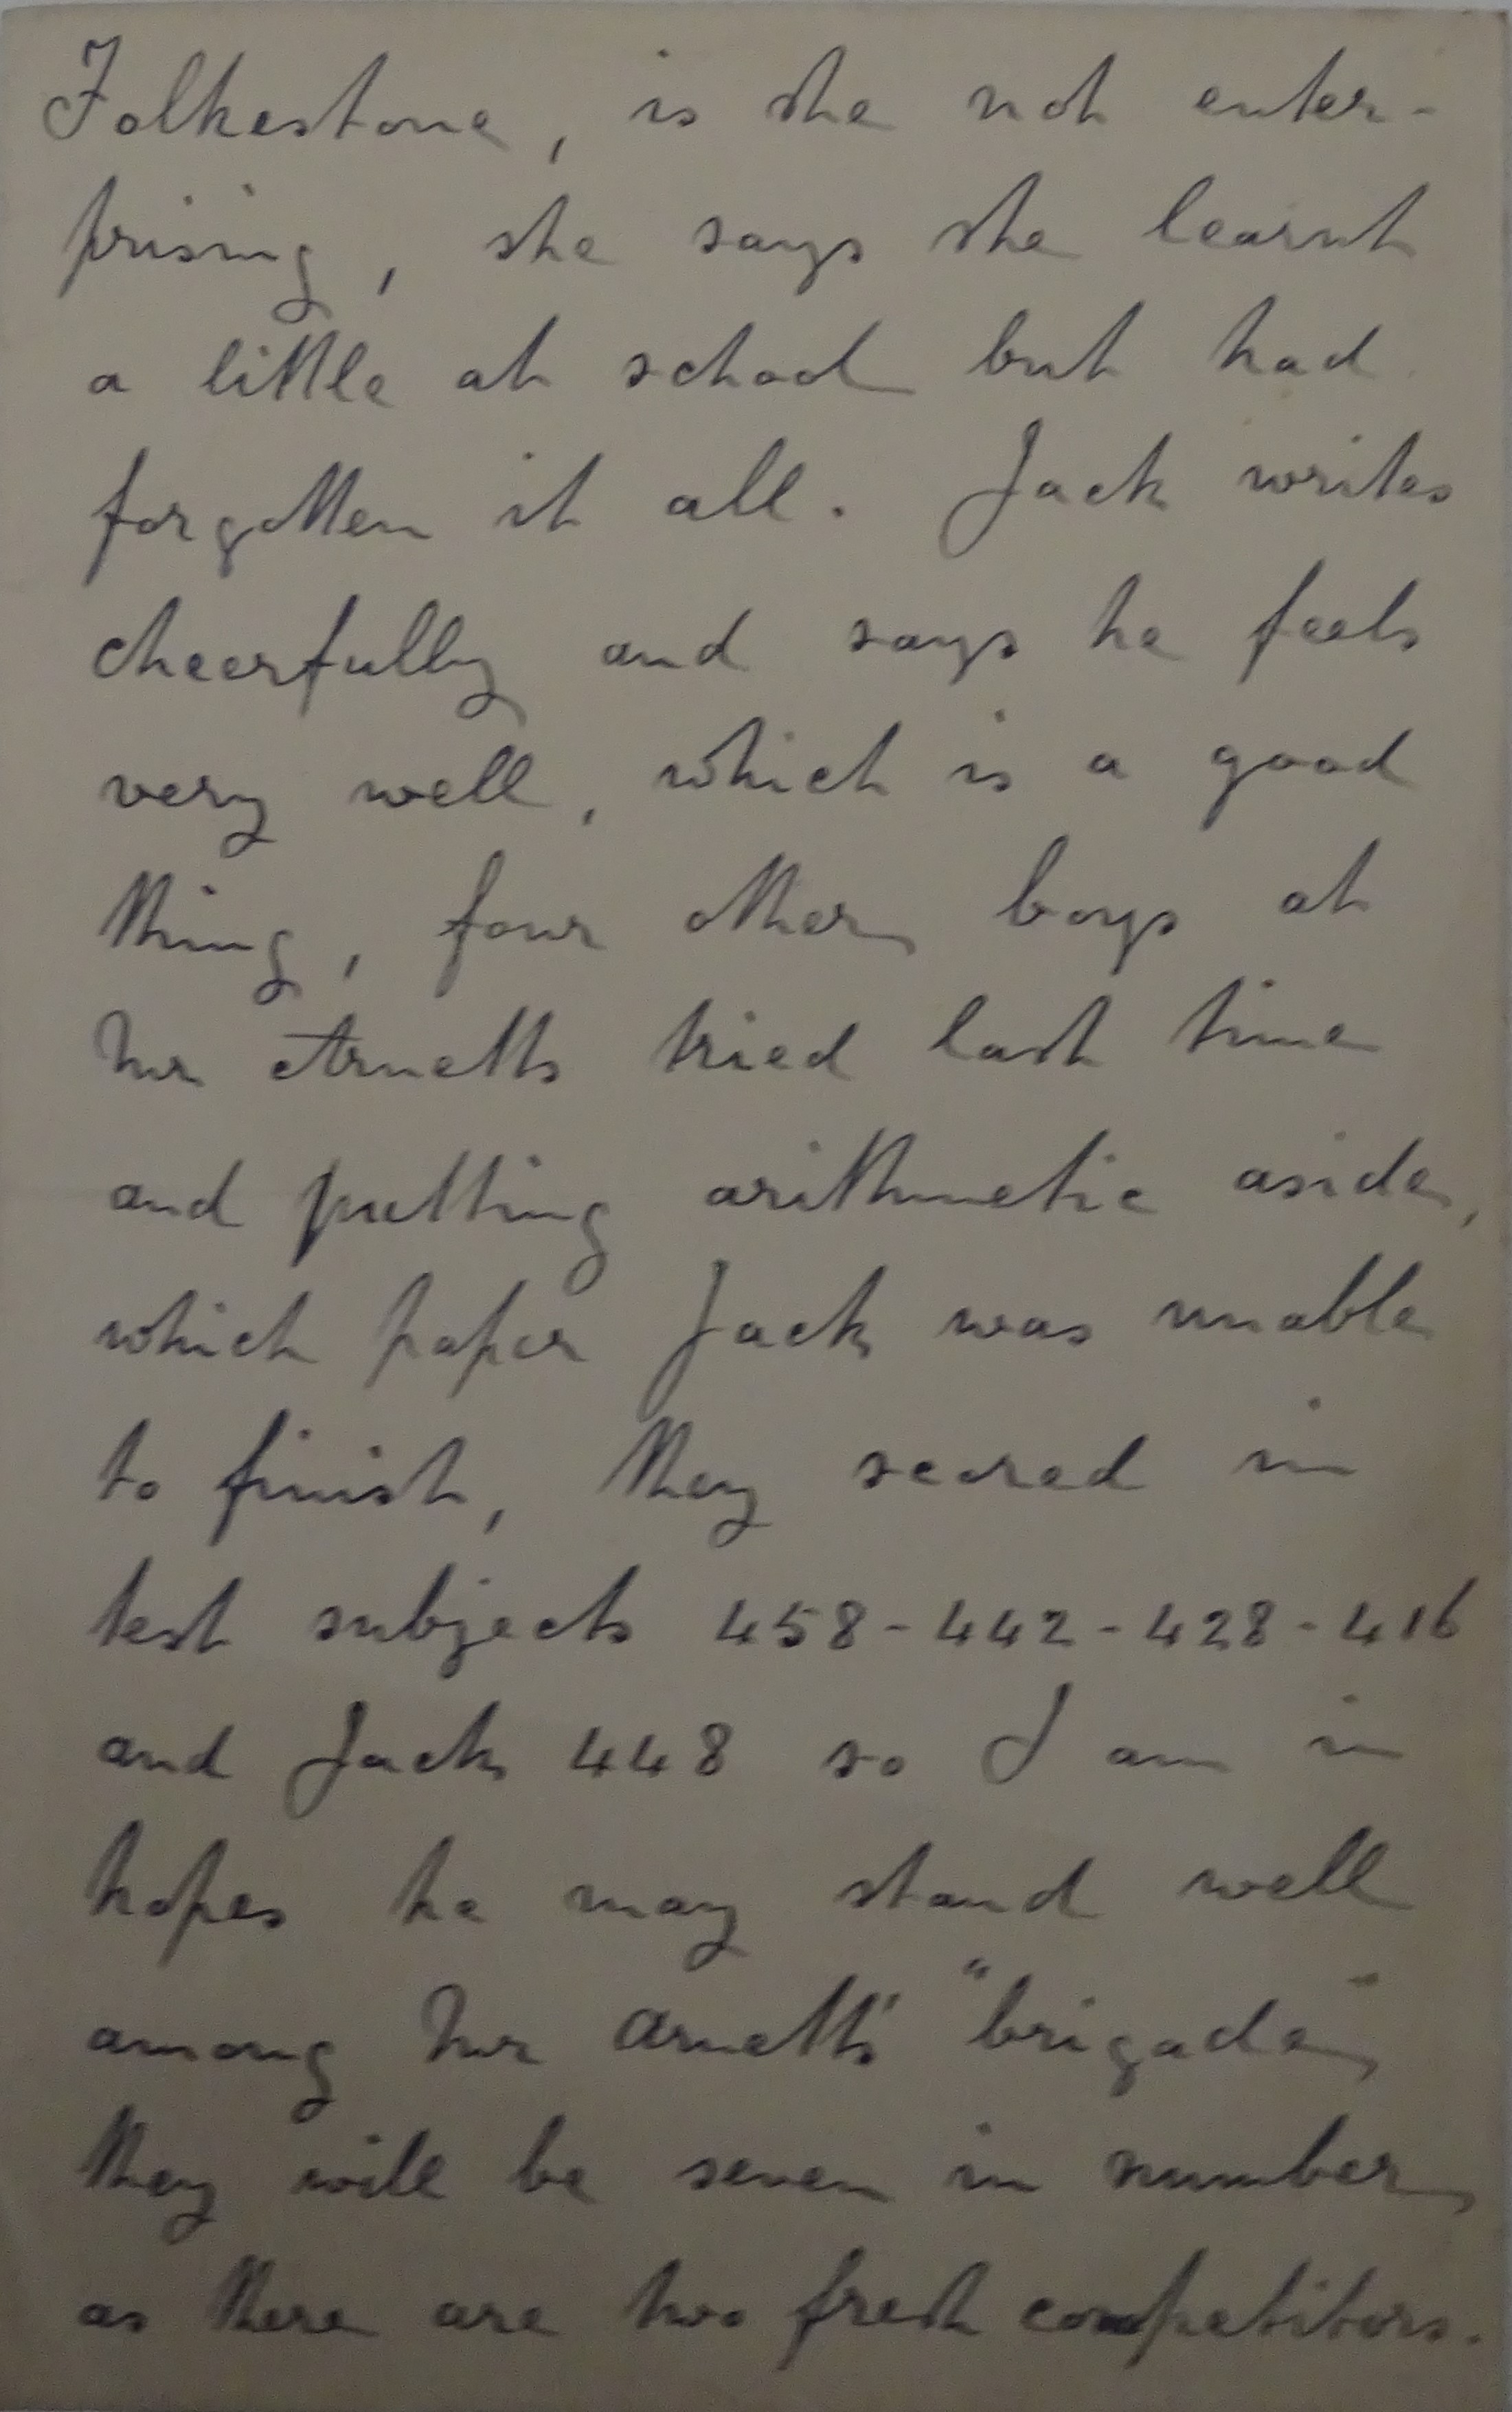 Folkestone, is she not enter-
prising, she says she learnt
a little at school but had
forgotten it all. Jack writes
cheerfully and says he feels
very well, which is a good
thing, four other boys at
Mr Arnetts tried last time
and putting arithmetic aside,
which paper Jack was unable
to finish, they scored in
test subjects 458-442-428-416
and Jack 448 so I am in
hopes he may stand well
among Mr Arnetts' "brigade"
they will be seven in number
as there are two fresh competitors.